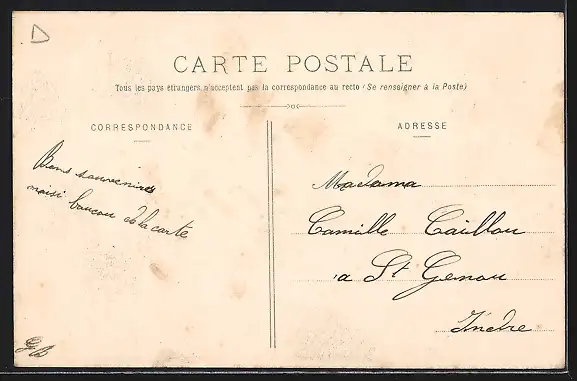 CARTE POSTALE
Tous les pays étrangers n'acceptent pas la correspondance au recto (Se renseigner à la Poste)
CORRESPONDANCE
Bons sauvenires
maisi baucou de la carte
ADRESSE
Madama
Camille Caillau
a St Genou
Indre